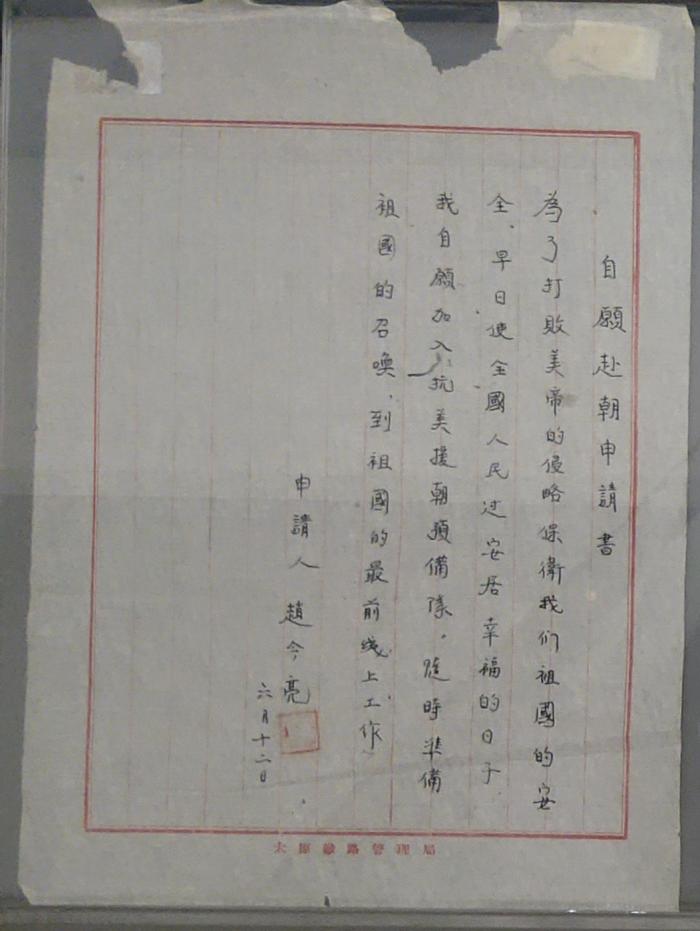 自願赴朝申請書
為了打敗美帝的侵略保衛我们祖國的安
全、早日使全國人民过安居幸福的日子
我自願加入抗美援朝預備隊。隨時準備
祖國的召喚、到祖國的最前綫上工作
申請人 趙今亮
六月十二日
太原鐵路管理局